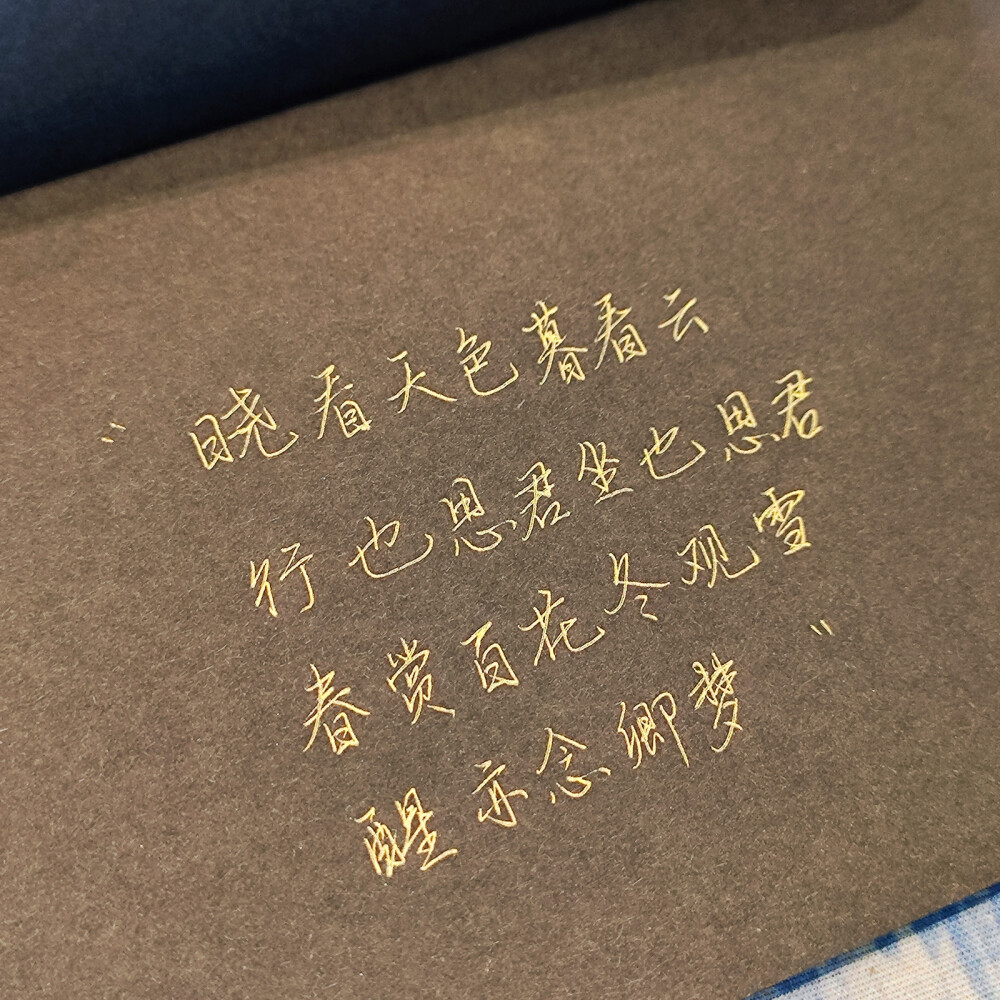 “晓看天色暮看云
行也思君坐也思君
春赏百花冬观雪”
醒亦念卿梦